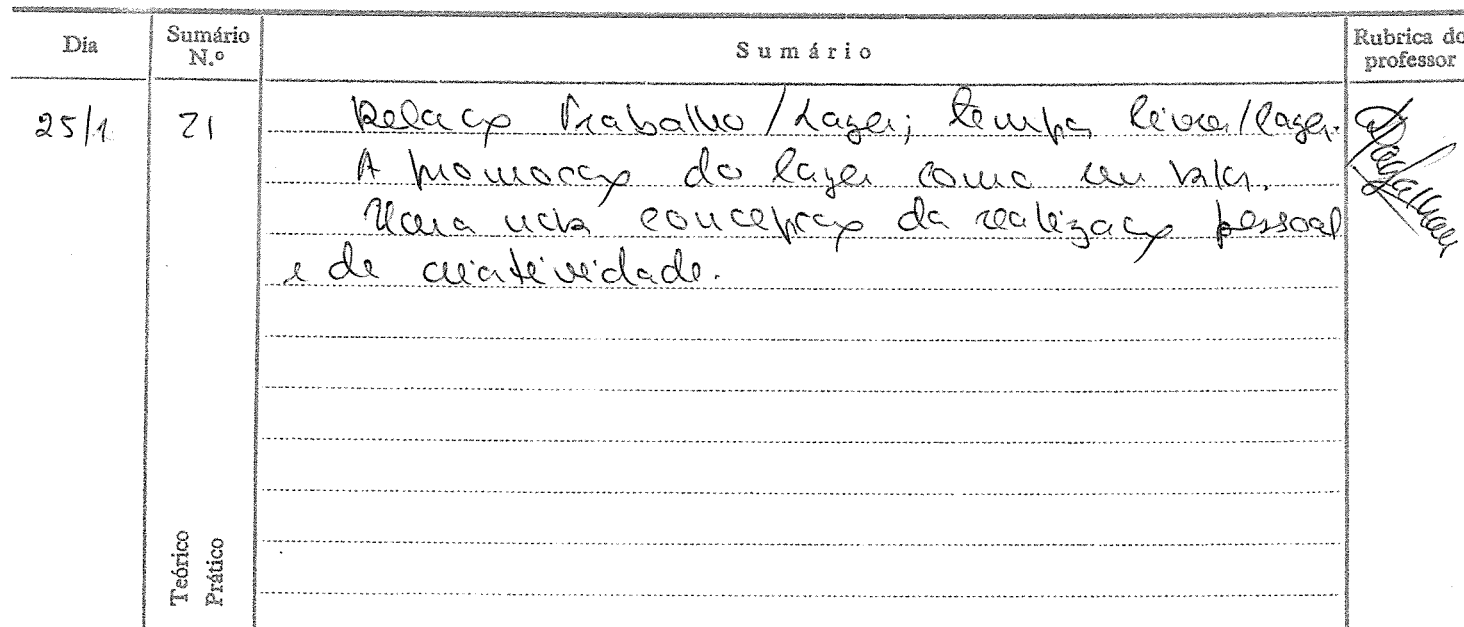 Dia
Sumário N.º
Sumário
Rubrica do professor
25/1 21 Relação Trabalho/Lazer; tempo livre/lazer.
A promoção do lazer como um valor.
Uma nova concepção da realização pessoal
e de criatividade.
Teórico
Prático